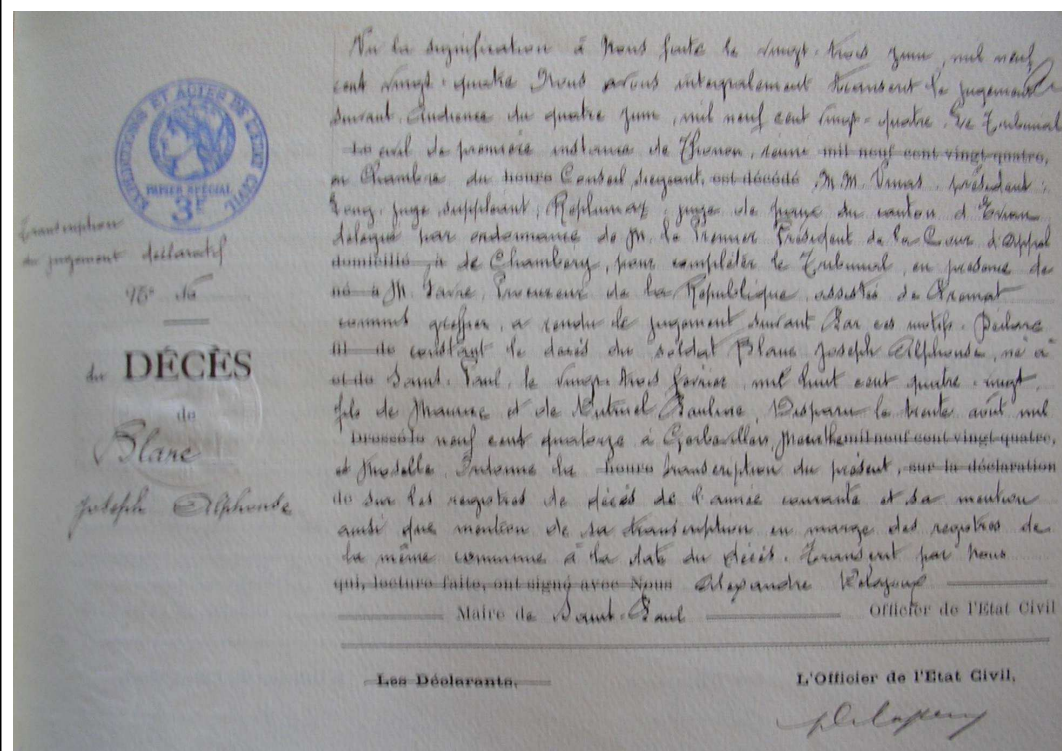 EXPÉDITIONS ET ACTES DE L'ÉTAT CIVIL
PAPIER SPÉCIAL
3F
Transcription
de jugement déclaratif
No
du DÉCÈS
de
Blanc
Joseph Alphonse
Vu la signification à Nous faite le vingt-trois juin, mil neuf
cent vingt-quatre Nous avons intégralement transcrit le jugement
suivant. Audience du quatre juin, mil neuf cent vingt-quatre. Le Tribunal
Le civil de première instance de Thonon, réuni mil neuf cent vingt-quatre,
en Chambre du heure Conseil siégeant, est décédé M.M. président :
juge suppléant, juge de paix du canton d'Evian
délégué par ordonnance de M. le Premier Président de la Cour d'Appel
domicilié à de Chambéry, pour compléter le Tribunal, en présence de
né à M. Favre, Procureur de la République, assistés de
commis greffier, a rendu le jugement suivant Par ces motifs. Déclare
fil de constant le décès du soldat Blanc Joseph Alphonse, né à
et de Saint-Paul, le vingt-trois février, mil huit cent quatre-vingt
fils de Maurice et de Pauline, Disparu le trente août mil
Dressé le neuf cent quatorze à Gerbeviller, Meurthe mil neuf cent vingt-quatre,
et Moselle. Ordonne la heure transcription du présent, sur la déclaration
de sur les registres de décès de l'année courante et sa mention
ainsi que mention de sa transcription en marge des registres de
la même commune à la date du décès. Transcrit par Nous
qui, lecture faite, ont signé avec Nous Alexandre
Maire de Saint-Paul Officier de l'Etat Civil
Les Déclarants, L'Officier de l'Etat Civil,